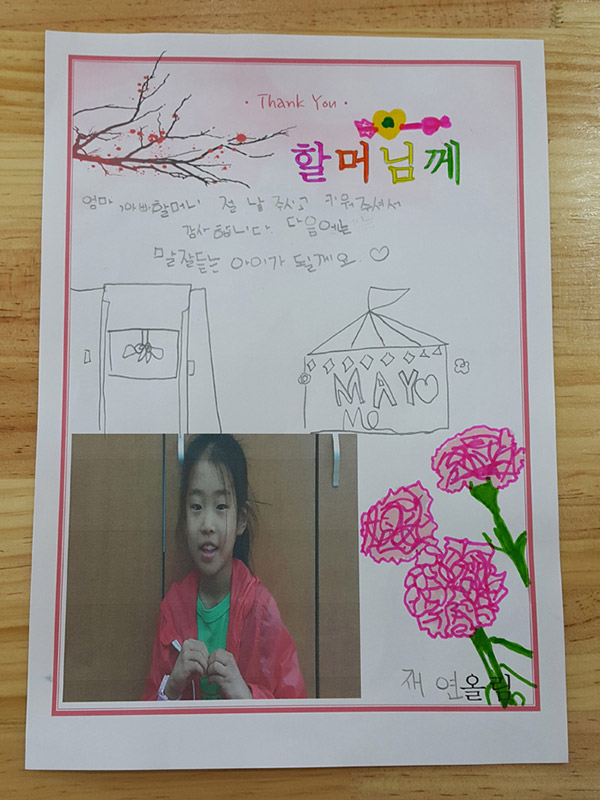 · Thank You ·
할머님께
엄마, 아빠할머니 절 낳 주시고 키워주셔서
감사 합니다 다음에는
말잘듣는 아이가 될게요 ♡
MAY♡
MO
재 연올림